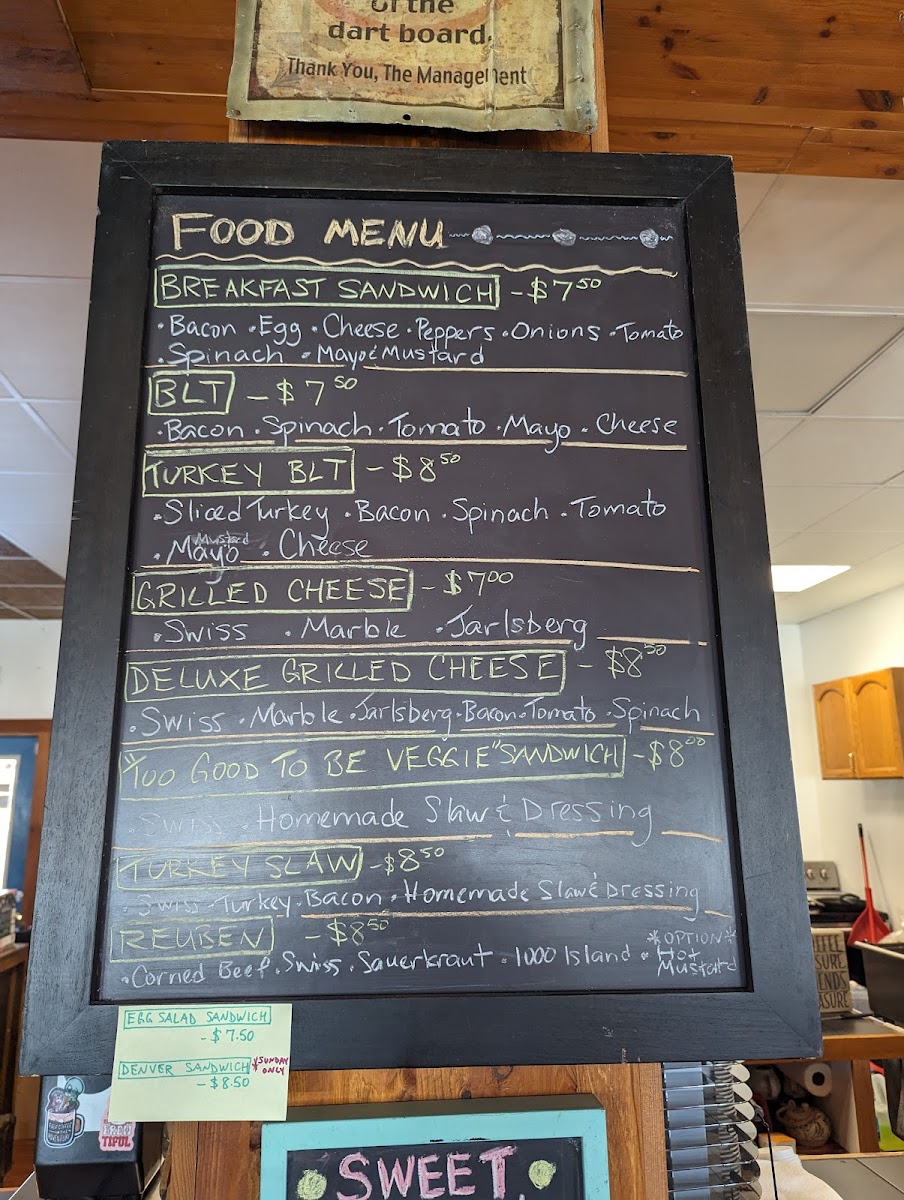 of the
dart board.
Thank You, The Management
FOOD MENU
BREAKFAST SANDWICH - $7 50
• Bacon • Egg • Cheese • Peppers • Onions • Tomato
• Spinach • Mayo & Mustard
BLT - $7 50
• Bacon • Spinach • Tomato • Mayo • Cheese
TURKEY BLT - $8 50
• Sliced Turkey • Bacon • Spinach • Tomato
Mustard
• Mayo • Cheese
GRILLED CHEESE - $7 00
• Swiss • Marble • Jarlsberg
DELUXE GRILLED CHEESE - $8 50
• Swiss • Marble • Jarlsberg • Bacon • Tomato • Spinach
"TOO GOOD TO BE VEGGIE" SANDWICH - $8 00
• Swiss • Homemade Slaw & Dressing
TURKEY SLAW - $8 50
• Swiss • Turkey • Bacon • Homemade Slaw & Dressing
REUBEN - $8 50
• Corned Beef • Swiss • Sauerkraut • 1000 Island • *OPTION* Hot Mustard
EGG SALAD SANDWICH
- $7.50
DENVER SANDWICH *SUNDAY ONLY
- $8.50
SWEET